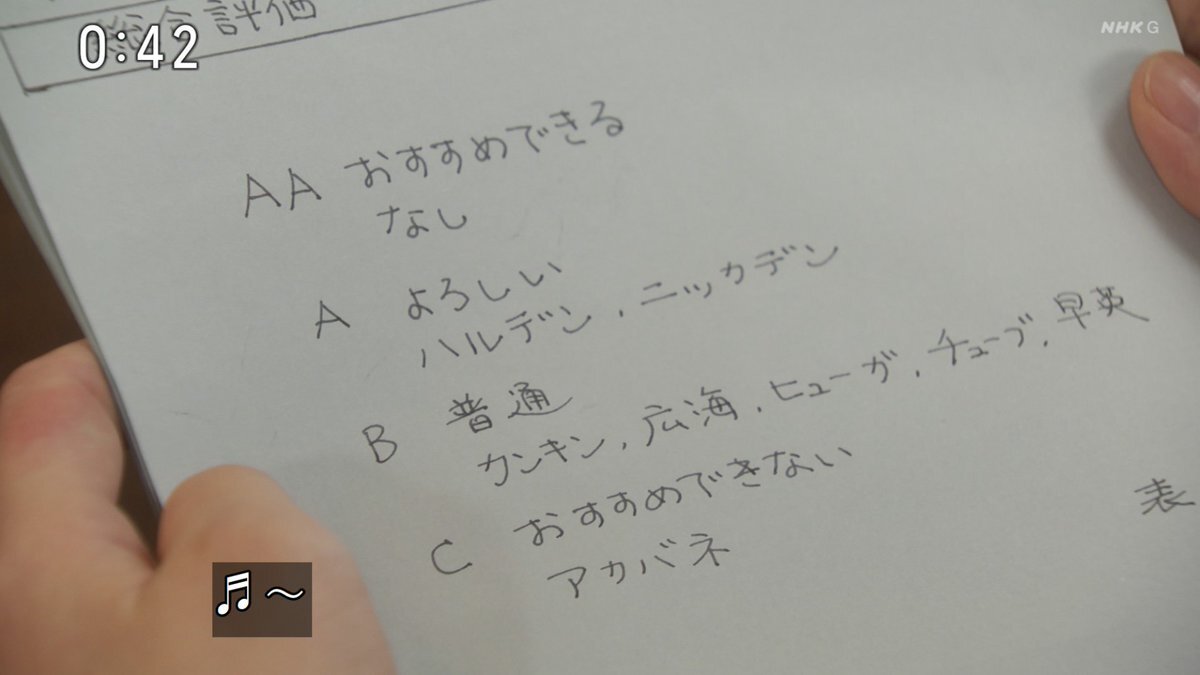 総合評価
0:42
NHK G
AA おすすめできる
なし
A よろしい
ハルデン, ニッカデン
B 普通
カンキン, 広海, ヒューガ, チューブ, 早英
C おすすめできない
アカバネ
表
♬～